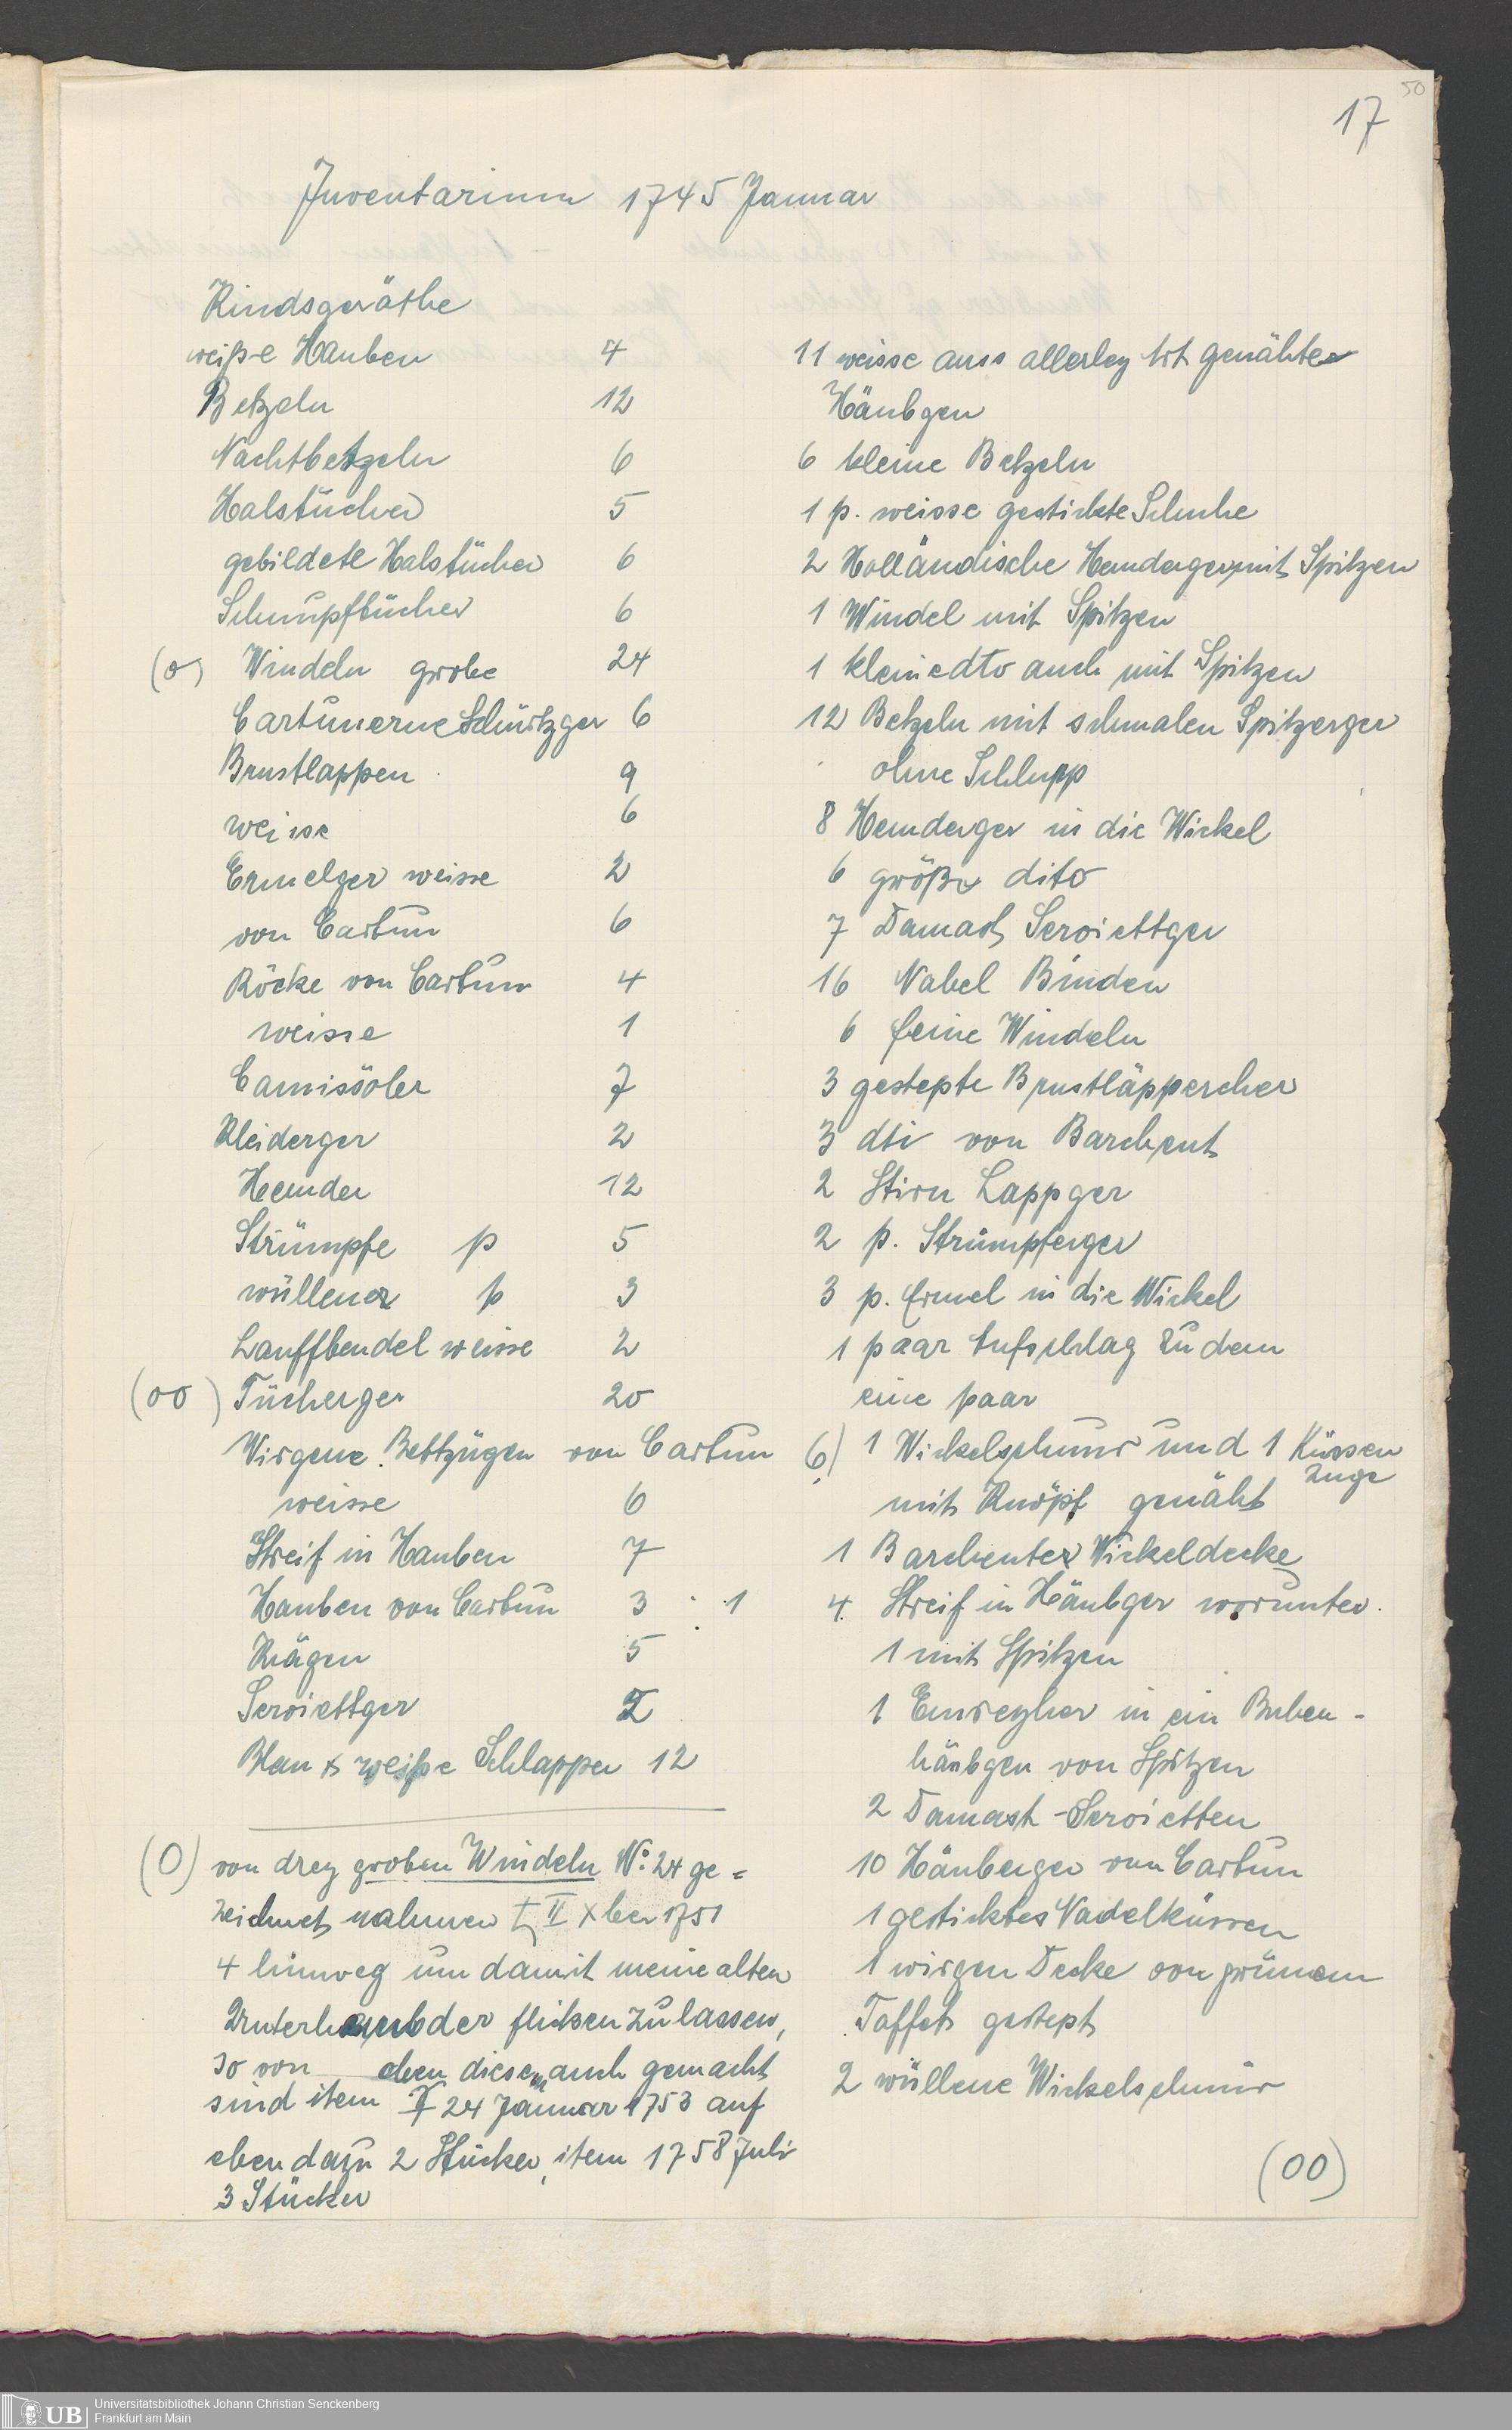 50
17
Inventarium 1745 Januar
Kindsgeräthe
weiße Hauben 4
Betzeln 12
Nachtbetzeln 6
Halstücher 5
gebildete Halstücher 6
Schnupftücher 6
(o) Windeln grobe 24
Cartunerne Schürtzger 6
Brustlappen 9
weisse 6
Ermelger weisse 2
von Cartun 6
Röcke von Cartun 4
weisse 1
Camisöler 7
Kleiderger 2
Hemder 12
Strümpfe p 5
wüllener p 3
Lauffbendel weisse 2
(oo) Tücherger 20
Wirgene Bettzügen von Cartun
weisse 6
Streif in Hauben 7
Hauben von Cartun 3 . 1
Krägen 5
Serviettger 2
Blau & weiße Schlapper 12
(O) von drey groben Windeln No: 24 ge=
zeichnet nahmen II Xber 1751
4 hinweg um damit meine alten
flicken zu lassen,
so von eben diesen auch gemacht
sind item 24 Januar 1753 auf
eben dazu 2 Stücker, item 1758 Juli
3 Stücker
11 weisse auss allerley Art genähte
Häubgen
6 kleine Betzeln
1 p. weisse gestickte Schuhe
2 Holländische Hemderger mit Spitzen
1 Windel mit Spitzen
1 kleine dto auch mit Spitzen
12 Betzeln mit schmalen Spitzerger
ohne Schlupp
8 Hemderger in die Wickel
6 größe dito
7 Damast Serviettger
16 Nabel Binden
6 feine Windeln
3 gestepte Brustläppercher
3 dti von Barchent
2 Stirn Lappger
2 p. Strümpferger
3 p. Ermel in die Wickel
1 paar Aufschlag zu dem
eine paar
6) 1 Wickelschnur und 1 Küssen
Zuge
mit Knöpf genäht
1 Barchenter Wickeldecke
4. Streif in Häubger worunter.
1 mit Spitzen
1 in ein Buben-
häubgen von Spitzen
2 Damast-Servietten
10 Häuberger von Cartun
1 gesticktes Nadelküssen
1 wirgen Decke von grünem
Taffet gestept
2 wüllene Wickelschnür
(OO)
UB Universitätsbibliothek Johann Christian Senckenberg
Frankfurt am Main